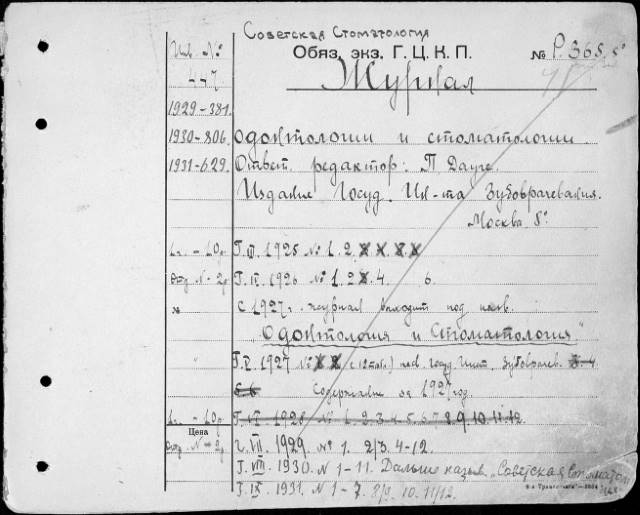 Советская Стоматология
Инв. №
Обяз. экз. Г.Ц.К.П.
№ Р 365
Журнал
447
1929-381.
1930-806.
Одонтологии и стоматологии.
1931-629.
Ответ. редактор: П. Дауге.
Издание Госуд. Ин-та Зубоврачевания.
Москва 8°
Т. III. 1925 № 1. 2
Т. IV. 1926 № 1. 2 4. 6.
№
С 1927г. журнал выходит под назв.
"Одонтология и Стоматология"
Т. V. 1927 № Госуд. Инст. Зубоврачев.
Содержание за 1927 год.
Т. VI. 1928 № 1. 2. 3. 4. 5. 6. 7. 8. 9. 10. 11. 12.
Цена
Т. VII. 1929. № 1. 2/3. 4-12.
Т. VIII. 1930. № 1-11. Дальше назыв. "Советская Стоматология"
Т. IX 1931. № 1-7. 8/9. 10. 11/12.